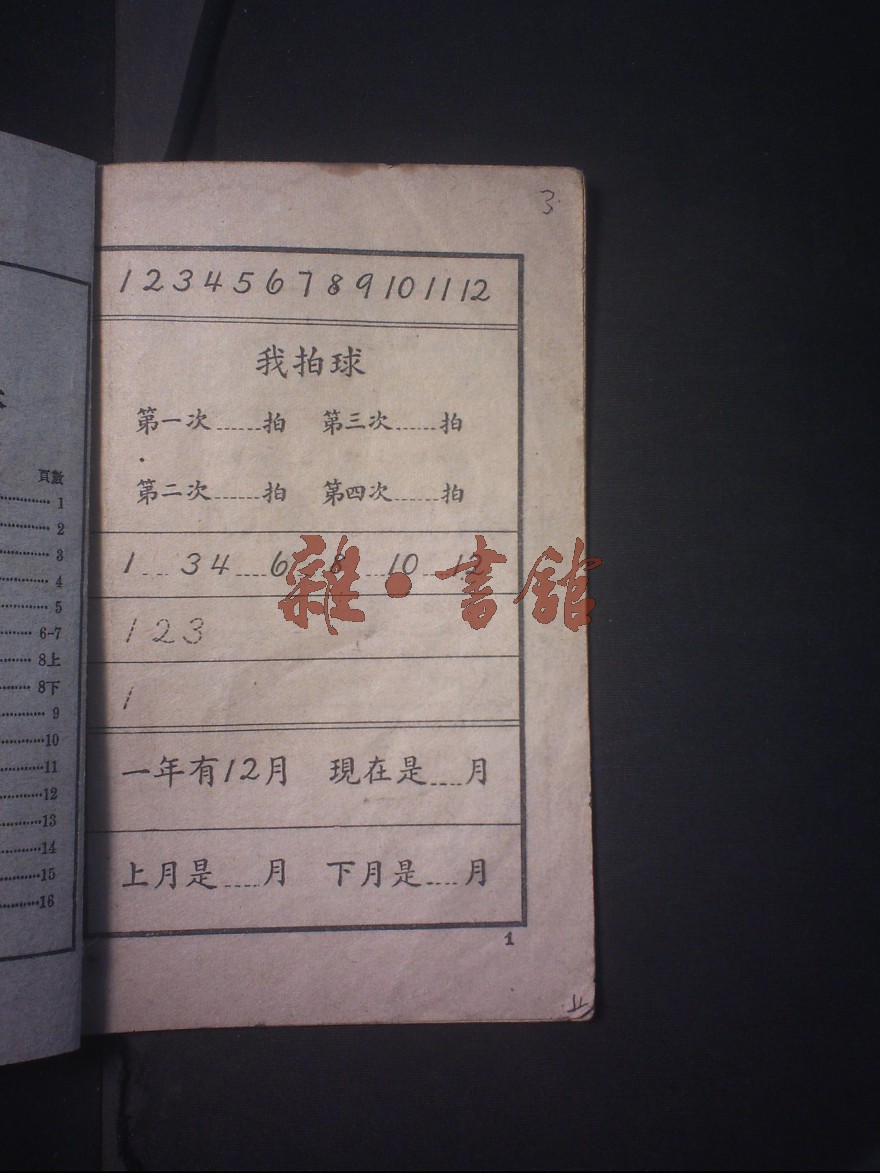 3
1 2 3 4 5 6 7 8 9 10 11 12
我拍球
第一次......拍 第三次......拍
第二次......拍 第四次......拍
1 ... 3 4 ... 6 ... 8 ... 10 ... 12
雜·書館
1 2 3
1
一年有12月 現在是....月
上月是....月 下月是....月
1
頁數
1
2
3
4
5
6-7
8上
8下
9
10
11
12
13
14
15
16